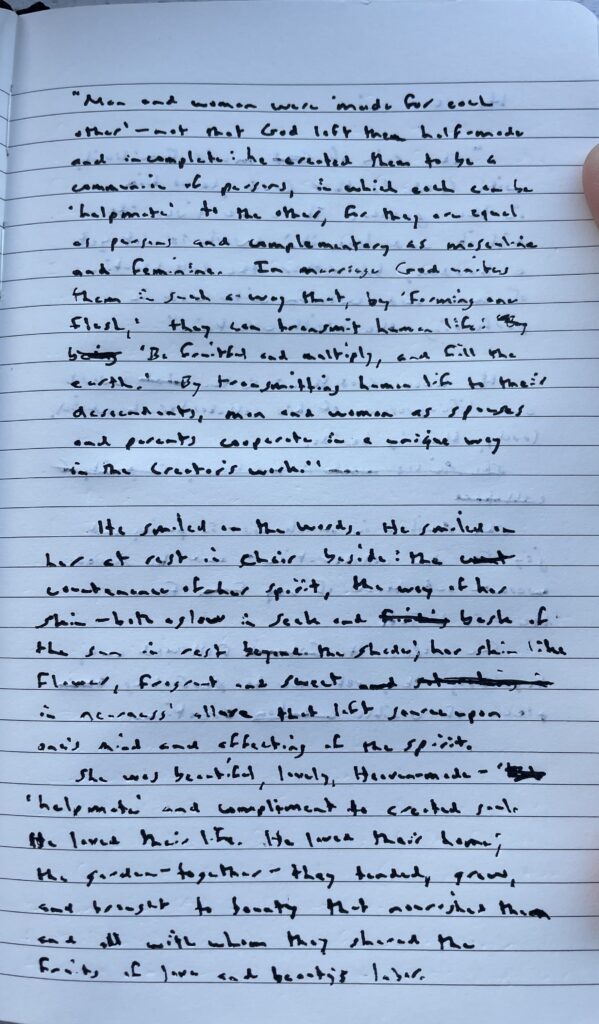 "Man and woman were 'made for each
other'—not that God left them half-made
and incomplete: he created them to be a
communion of persons, in which each can be
'helpmate' to the other, for they are equal
as persons and complementary as masculine
and feminine. In marriage God unites
them in such a way that, by 'forming one
flesh,' they can transmit human life:
'Be fruitful and multiply, and fill the
earth.' By transmitting human life to their
descendants, man and woman as spouses
and parents cooperate in a unique way
in the Creator's work."
He smiled on the words. He smiled on
her at rest in chair beside: the
countenance of her spirit, the way of her
skin—both aglow in seek and bask of
the sun in rest beyond the shade; her skin like
flower, fragrant and sweet
in nearness' allure that left upon
one's mind and affecting of the spirit.
She was beautiful, lovely, Heaven-made—
'helpmate' and compliment to created soul.
He loved their life. He loved their home;
the garden—together—they tended, grew,
and brought to bounty that nourished them
and all with whom they shared the
fruits of love and beauty's labor.